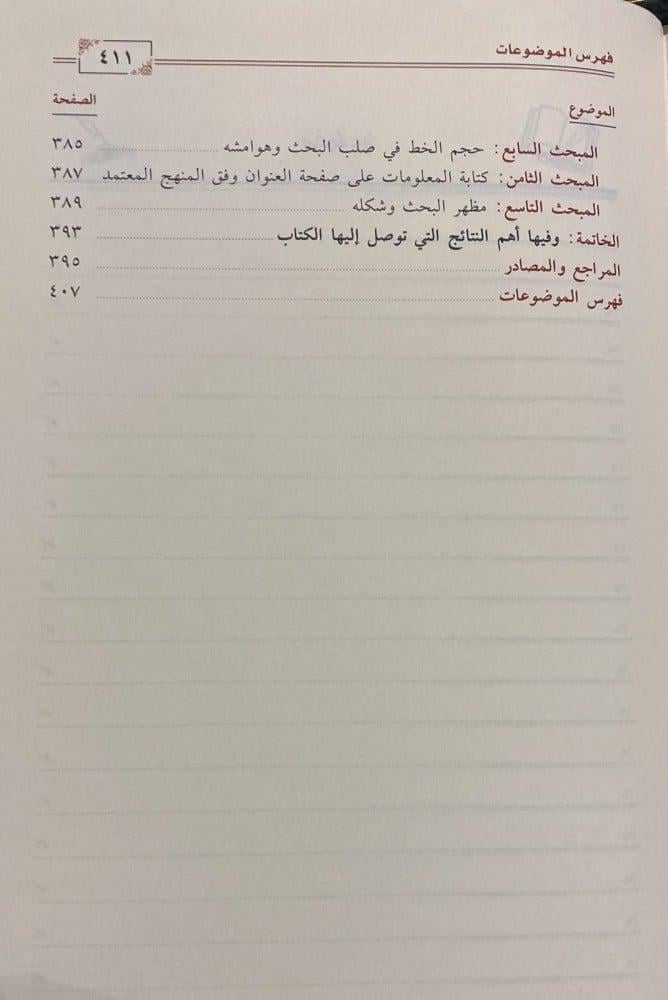 فهرس الموضوعات ٤١١
الموضوع الصفحة
المبحث السابع: حجم الخط في صلب البحث وهوامشه ٣٨٥
المبحث الثامن: كتابة المعلومات على صفحة العنوان وفق المنهج المعتمد ٣٨٧
المبحث التاسع: مظهر البحث وشكله ٣٨٩
الخاتمة: وفيها أهم النتائج التي توصل إليها الكتاب ٣٩٣
المراجع والمصادر ٣٩٥
فهرس الموضوعات ٤٠٧